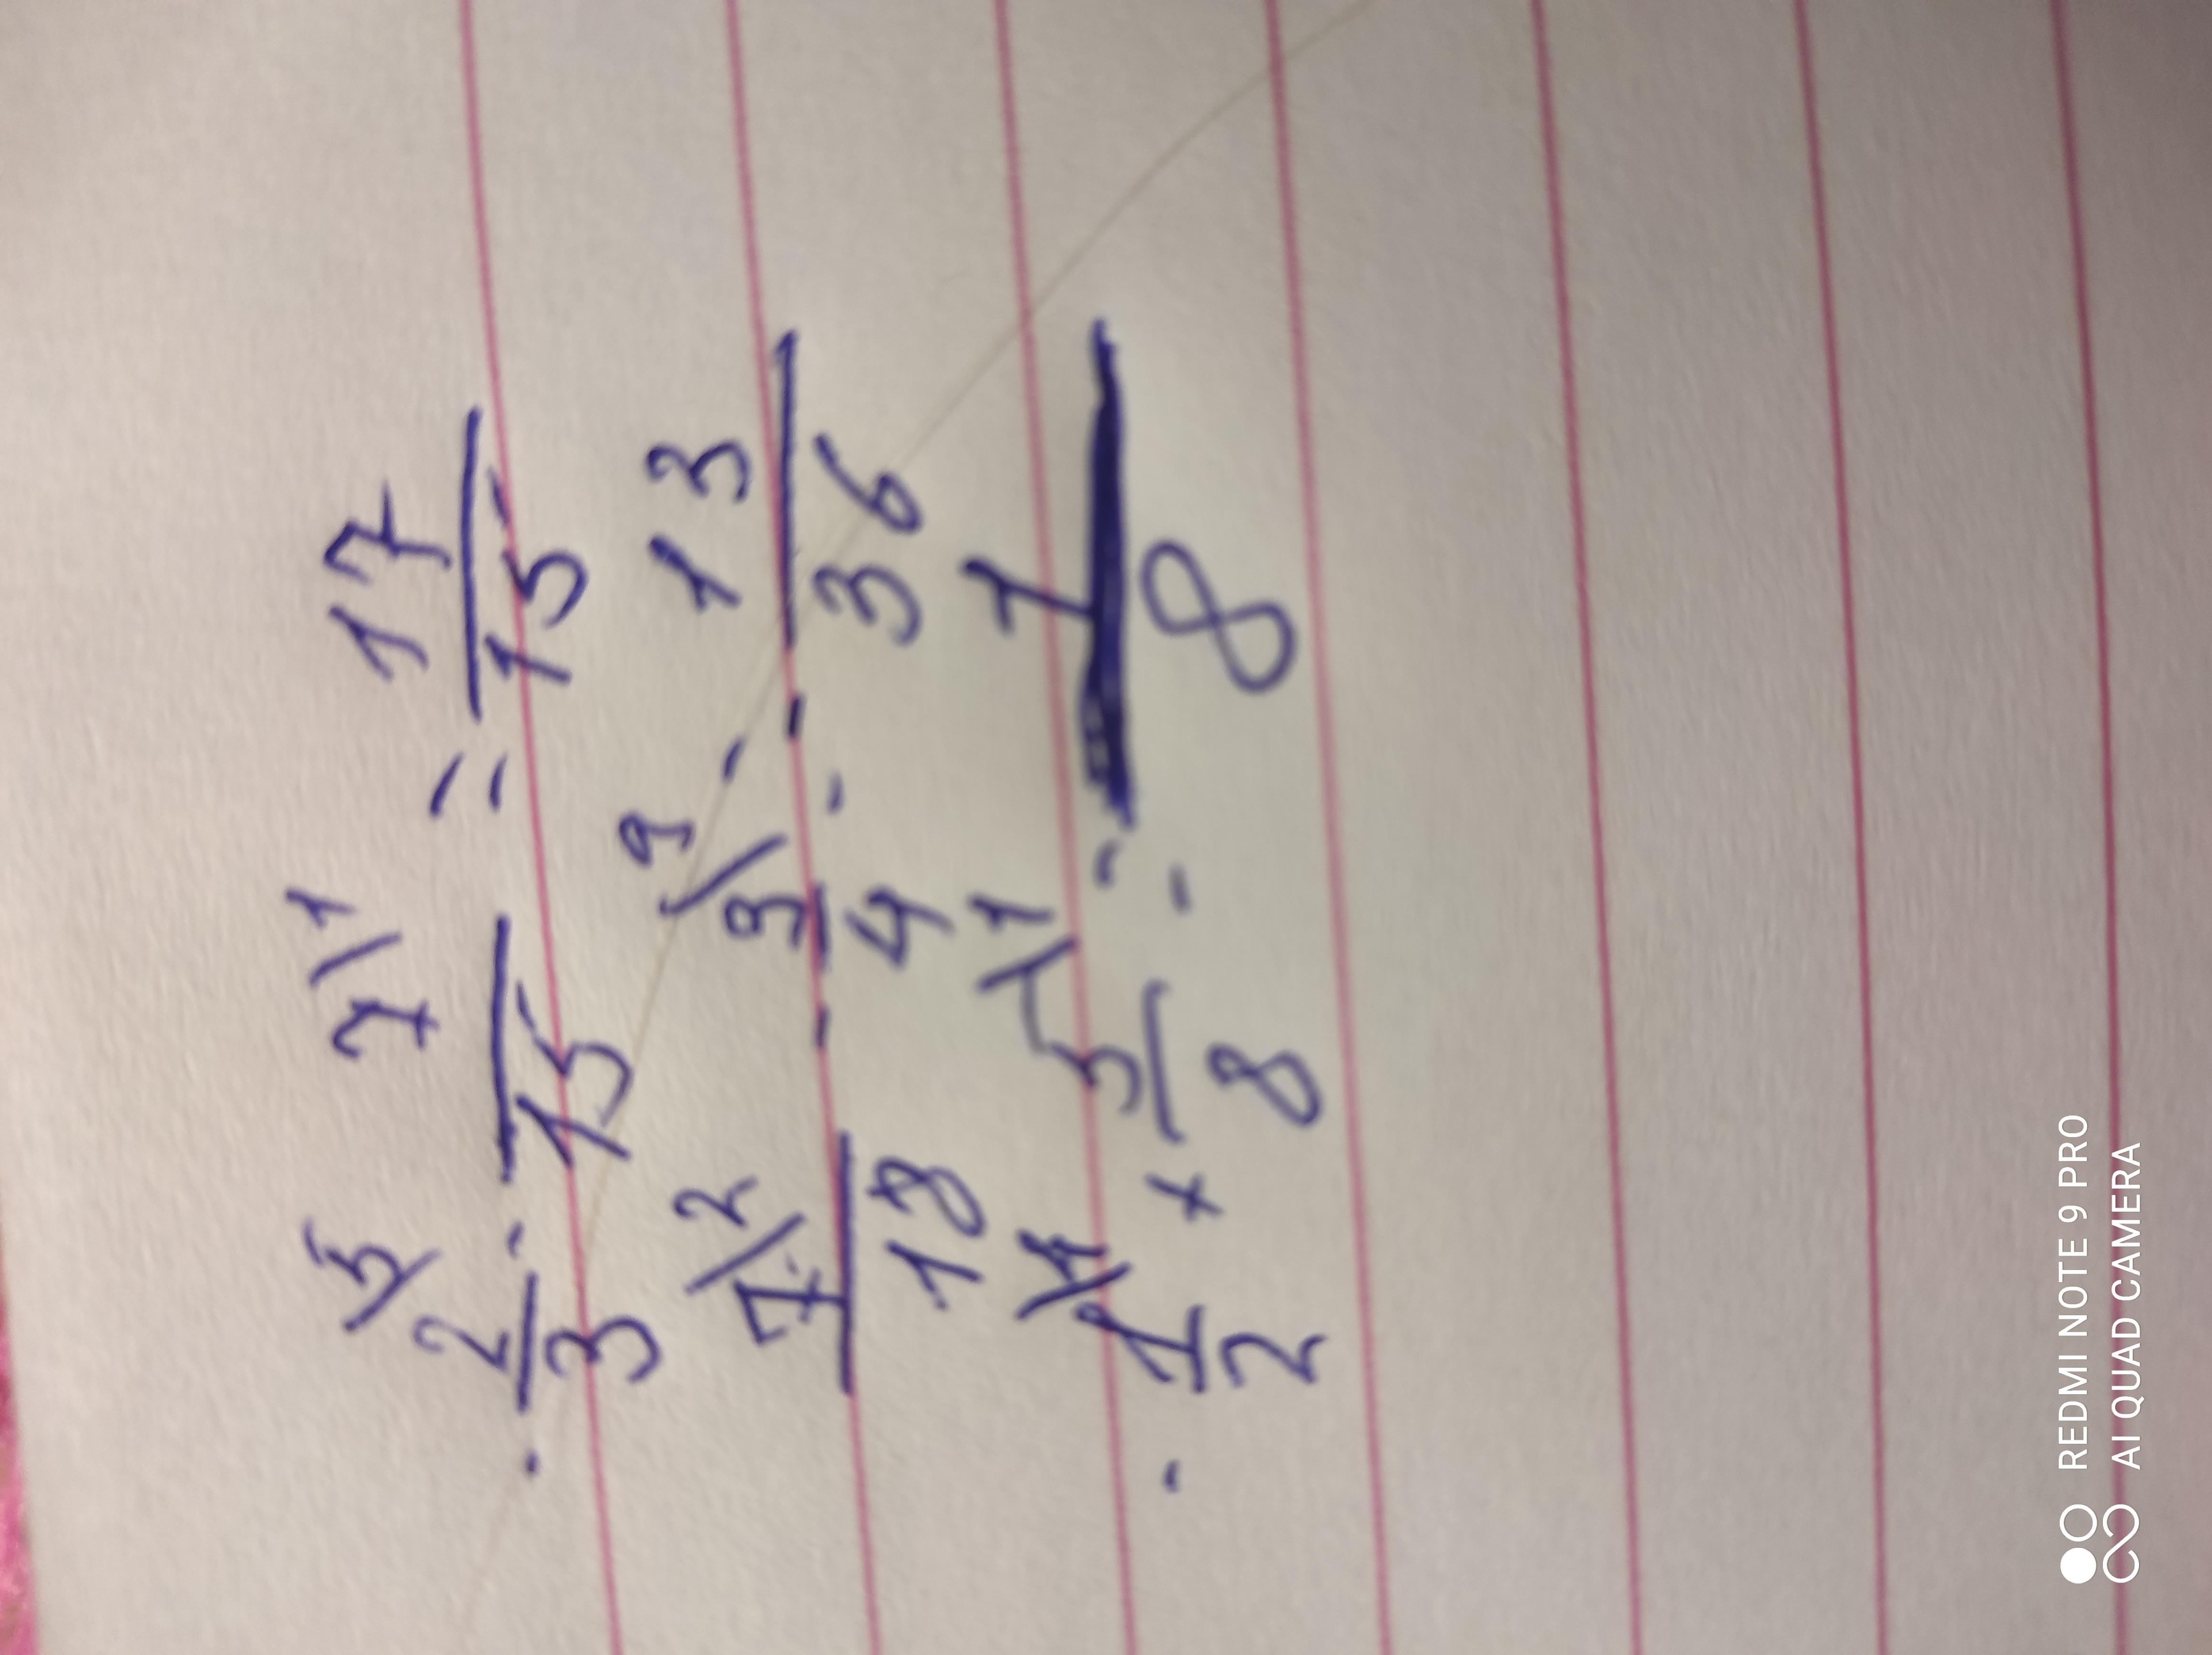 - 2/3 \5 - 7/15 \1 = 17/15
7/18 \2 - 3/4 \9 = - 13/36
- 1/2 \4 + 5/8 \1 = 1/8
REDMI NOTE 9 PRO
AI QUAD CAMERA